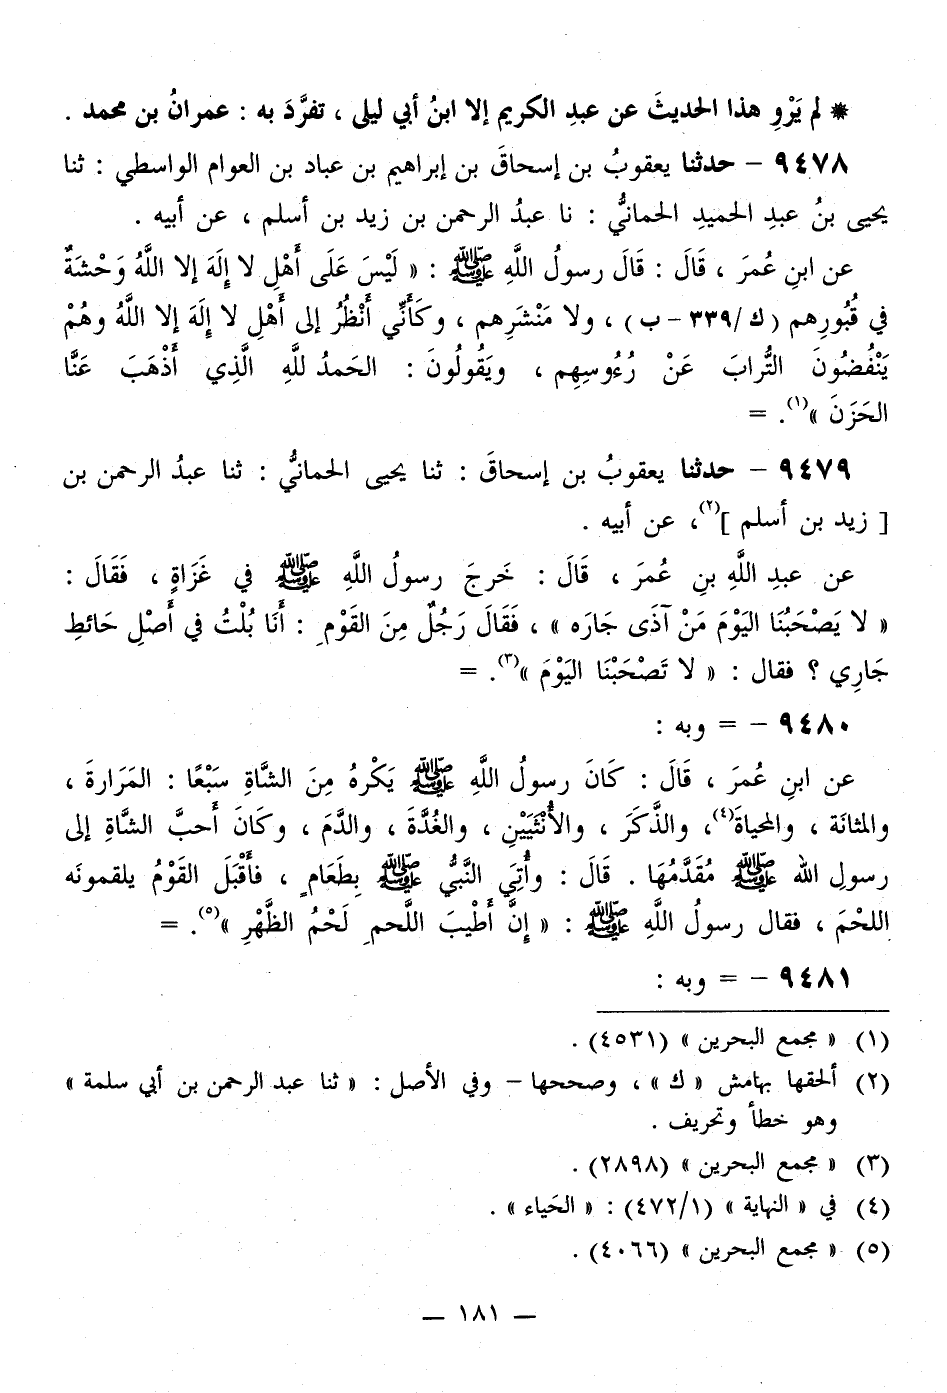 * لم يَرْوِ هذا الحديثَ عن عبدِ الكريم إلا ابنُ أبي ليلى ، تفرَّدَ به : عمرانُ بن محمد .
٩٤٧٨ – حدثنا يعقوبُ بن إسحاقَ بن إبراهيم بن عباد بن العوام الواسطي : ثنا
يحيى بنُ عبدِ الحميدِ الحمانيُّ : نا عبدُ الرحمن بن زيد بن أسلم ، عن أبيه .
عن ابنِ عُمرَ ، قَالَ : قَالَ رسولُ اللَّهِ ﷺ : « لَيْسَ عَلَى أَهْلِ لا إِلَهَ إلا اللَّهُ وَحْشَةٌ
في قُبُورِهم (ك /٣٣٩ – ب) ، ولا مَنْشَرِهم ، وكَأَنِّي أَنْظُرُ إلى أَهْلِ لا إِلَهَ إلا اللَّهُ وهُمْ
يَنْفُضُونَ التُّرابَ عَنْ رُءُوسِهِم ، ويَقُولُونَ : الحَمدُ للَّهِ الَّذِي أَذْهَبَ عَنَّا
الحَزَنَ »(١). =
٩٤٧٩ – حدثنا يعقوبُ بن إسحاقَ : ثنا يحيى الحمانيُّ : ثنا عبدُ الرحمن بن
[ زيد بن أسلم ](٢)، عن أبيه .
عن عبدِ اللَّهِ بنِ عُمرَ ، قَالَ : خَرجَ رسولُ اللَّهِ ﷺ في غَزَاةٍ ، فَقَالَ :
« لا يَصْحَبُنَا اليَوْمَ مَنْ آذَى جَارَه » ، فَقَالَ رَجُلٌ مِنَ القَوْمِ : أَنَا بُلْتُ في أَصْلِ حَائطِ
جَارِي ؟ فقال : « لا تَصْحَبْنَا اليَوْمَ »(٣). =
٩٤٨٠ – = وبه :
عن ابنِ عُمرَ ، قَالَ : كَانَ رسولُ اللَّهِ ﷺ يَكْرهُ مِنَ الشَّاةِ سَبْعًا : المَرَارةَ ،
والمثانَة ، والمحياةَ(٤)، والذَّكَرَ ، والأُنْثَيَيْنِ ، والغُدَّةَ ، والدَّمَ ، وكَانَ أَحبَّ الشَّاةِ إلى
رسولِ الله ﷺ مُقَدَّمُهَا . قَالَ : وأُتِيَ النَّبيُّ ﷺ بِطَعَامٍ ، فأَقْبَلَ القَوْمُ يلقمونَه
اللحْمَ ، فقال رسولُ اللَّهِ ﷺ : « إِنَّ أَطْيبَ اللَّحمِ لَحْمُ الظَّهْرِ »(٥). =
٩٤٨١ – = وبه :
(١) « مجمع البحرين » (٤٥٣١) .
(٢) ألحقها بهامش « ك » ، وصححها – وفي الأصل : « ثنا عبد الرحمن بن أبي سلمة »
وهو خطأ وتحريف .
(٣) « مجمع البحرين » (٢٨٩٨) .
(٤) في « النهاية » (٤٧٢/١) : « الحَياء » .
(٥) « مجمع البحرين » (٤٠٦٦) .
— ١٨١ —